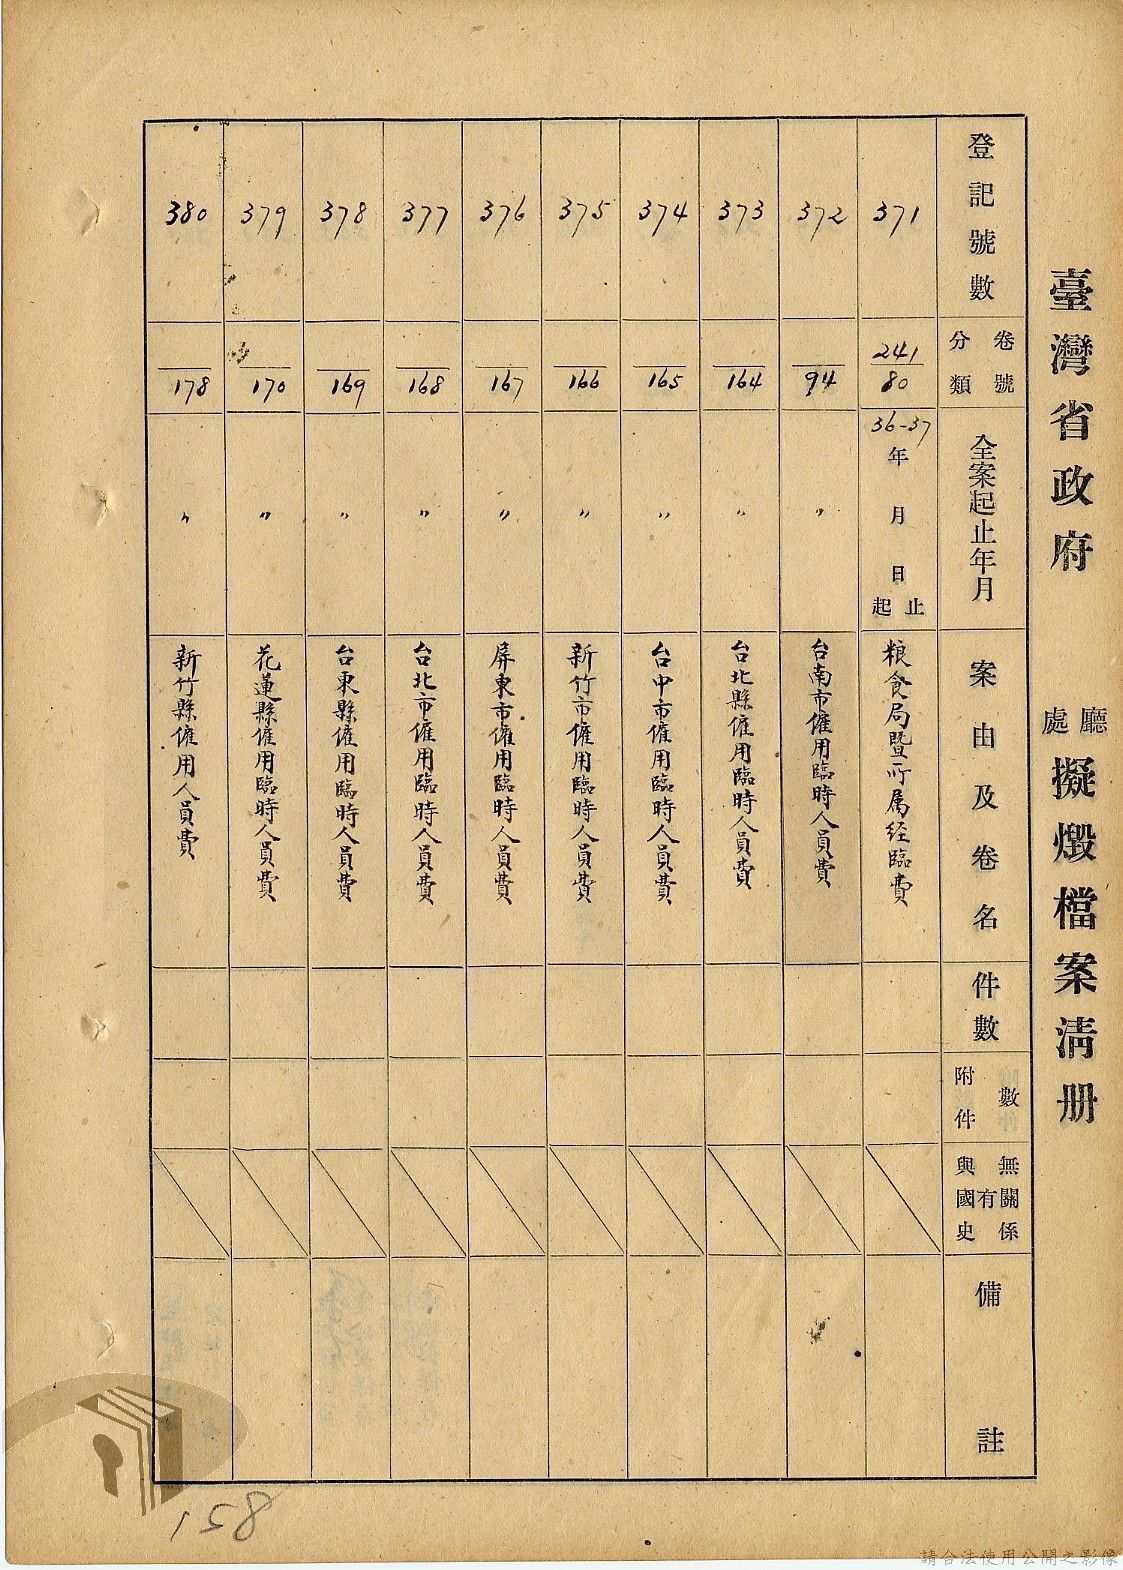 臺灣省政府 廳處 擬燬檔案清册
登記號數
卷號
分類
全案起止年月
案由及卷名
件數
附件
數
與國史
有
無關係
備註
371
241
80
36-37
年 月 日
起止
粮食局暨所属经臨費
372
94
〃
台南市僱用臨時人員費
373
164
〃
台北縣僱用臨時人員費
374
165
〃
台中市僱用臨時人員費
375
166
〃
新竹市僱用臨時人員費
376
167
〃
屏東市僱用臨時人員費
377
168
〃
台北市僱用臨時人員費
378
169
〃
台東縣僱用臨時人員費
379
170
〃
花蓮縣僱用臨時人員費
380
178
〃
新竹縣僱用人員費
158
請合法使用公開之影像